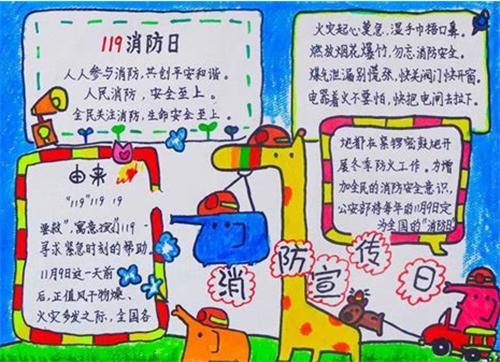 119消防日
人人参与消防，共创平安和谐。
人民消防，安全至上。
全民关注消防，生命安全至上。
由来
"119" 119 19
寓意
寻求紧急时刻的帮助。
11月9日这一天前
后，正值风干物燥、
火灾多发之际，全国各
火灾起心莫急，湿手巾捂口鼻。
燃放烟花爆竹，勿忘消防安全。
泄漏别慌张，快关阀门快开窗。
电器着火不要怕，快把电闸去拉下。
地都在紧锣密鼓地开
展冬季防火工作。为增
加全民的消防安全意识，
公安部将每年的11月9日定
为全国的"消防日
消防宣传日